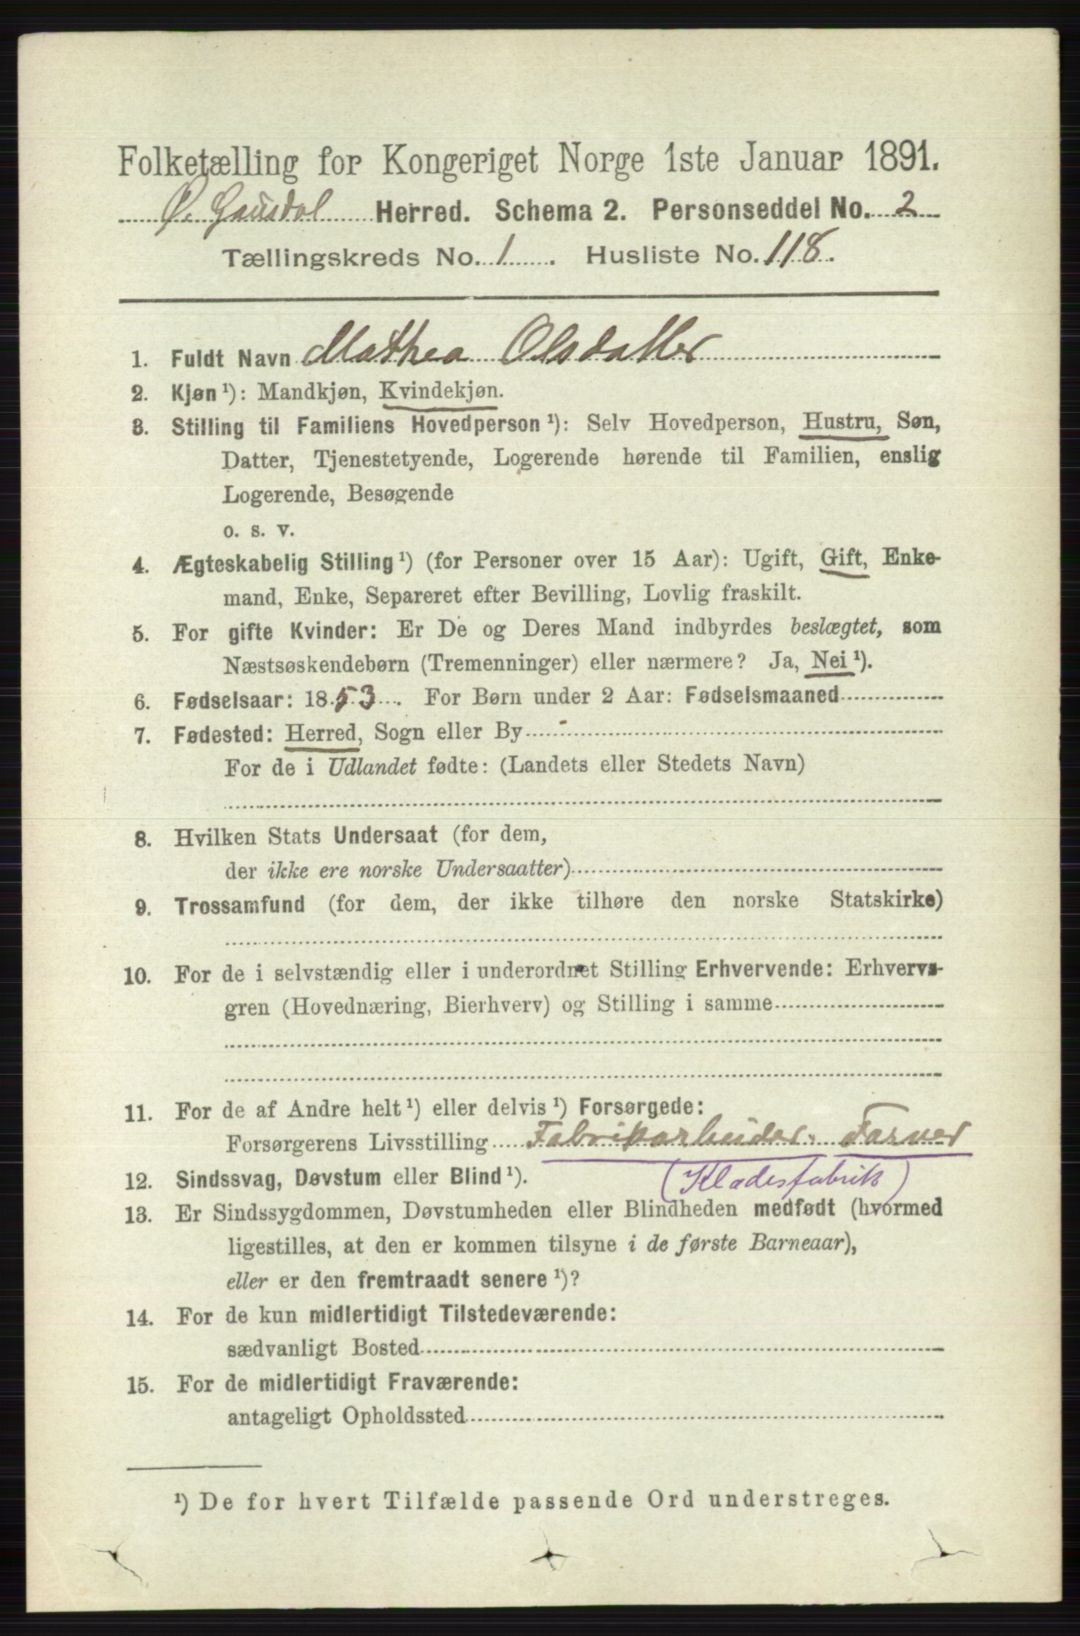 Folketælling for Kongeriget Norge 1ste Januar 1891.
Ø. Gausdal Herred. Schema 2. Personseddel No. 2
Tællingskreds No. 1. Husliste No. 118.
1. Fuldt Navn Mathea Olsdatter
2. Kjøn ¹): Mandkjøn, Kvindekjøn.
3. Stilling til Familiens Hovedperson ¹): Selv Hovedperson, Hustru, Søn,
Datter, Tjenestetyende, Logerende hørende til Familien, enslig
Logerende, Besøgende
o. s. v.
4. Ægteskabelig Stilling ¹) (for Personer over 15 Aar): Ugift, Gift, Enke-
mand, Enke, Separeret efter Bevilling, Lovlig fraskilt.
5. For gifte Kvinder: Er De og Deres Mand indbyrdes beslægtet, som
Næstsøskendebørn (Tremenninger) eller nærmere? Ja, Nei ¹).
6. Fødselsaar: 1853. For Børn under 2 Aar: Fødselsmaaned
7. Fødested: Herred, Sogn eller By
For de i Udlandet fødte: (Landets eller Stedets Navn)
8. Hvilken Stats Undersaat (for dem,
der ikke ere norske Undersaatter)
9. Trossamfund (for dem, der ikke tilhøre den norske Statskirke)
10. For de i selvstændig eller i underordnet Stilling Erhvervende: Erhvervs-
gren (Hovednæring, Bierhverv) og Stilling i samme
11. For de af Andre helt ¹) eller delvis ¹) Forsørgede:
Forsørgerens Livsstilling Fabrikarbeider. Farver
12. Sindssvag, Døvstum eller Blind ¹). (Klædesfabrik)
13. Er Sindssygdommen, Døvstumheden eller Blindheden medfødt (hvormed
ligestilles, at den er kommen tilsyne i de første Barneaar),
eller er den fremtraadt senere ¹)?
14. For de kun midlertidigt Tilstedeværende:
sædvanligt Bosted
15. For de midlertidigt Fraværende:
antageligt Opholdssted
¹) De for hvert Tilfælde passende Ord understreges.